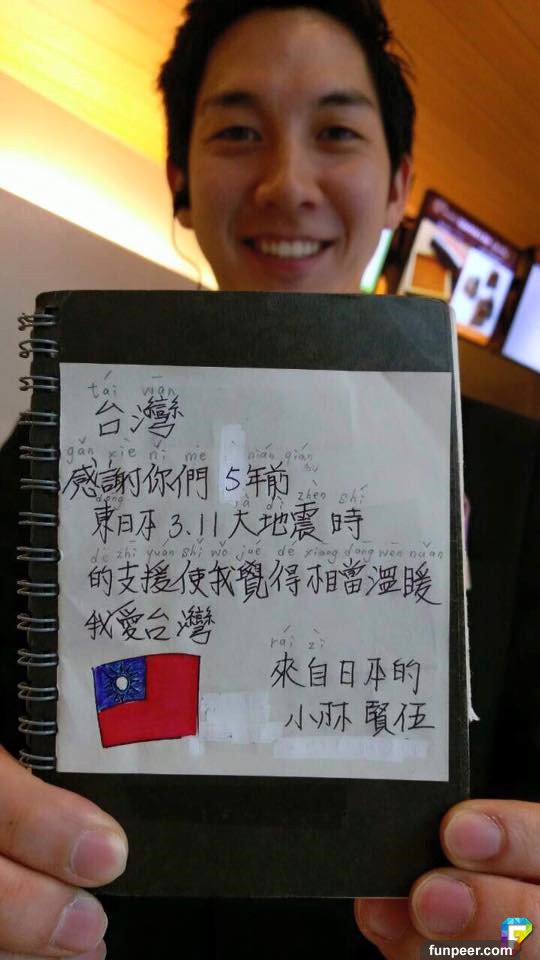 tái wān
台灣
gǎn xiè nǐ me nián qián
感謝你們 5年前
dōng dà dì zhèn shí
東日本 3.11 大地震時
de zhī yuán shǐ wǒ jué de xiāng dāng wēn nuǎn
的支援使我覺得相當溫暖
我愛台灣
來自日本的
小林 賢伍
funpeer.com